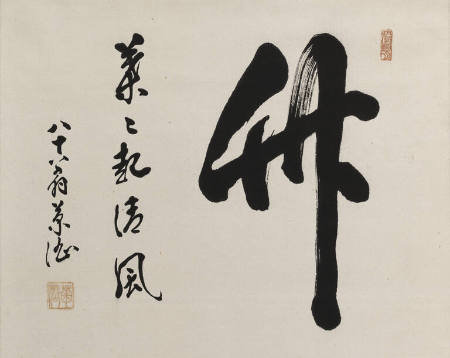 竹
葉〻起清風
八十翁